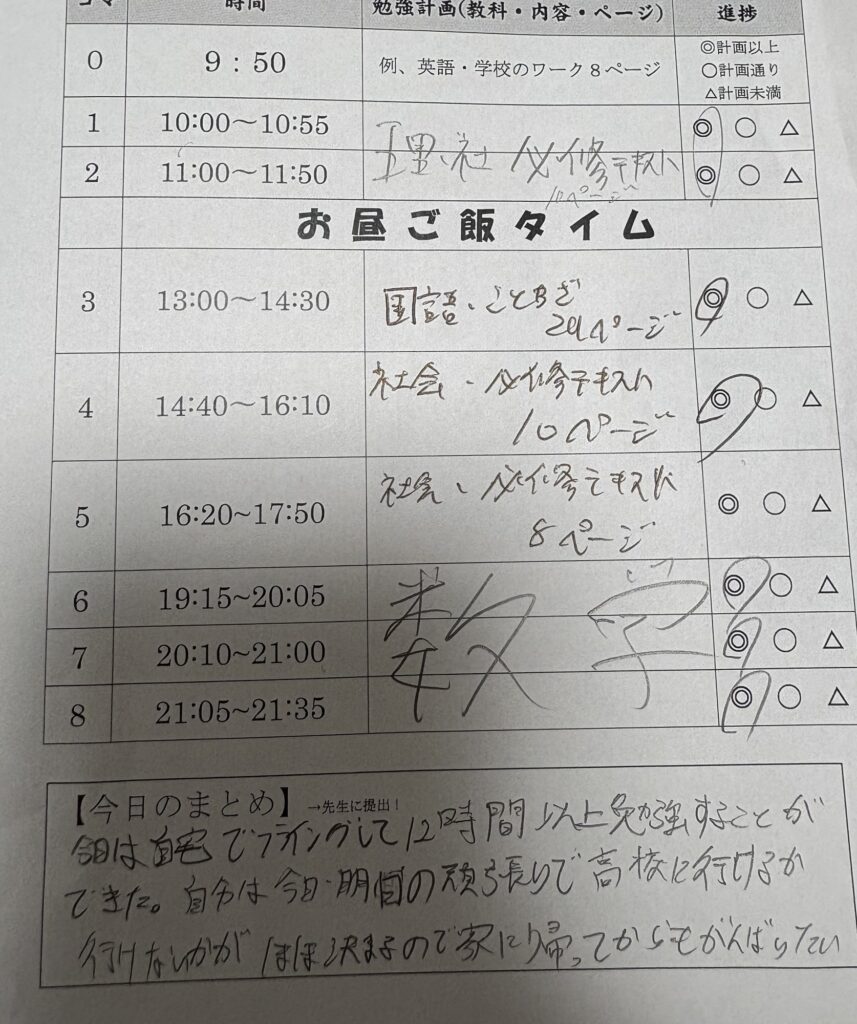 コマ 時間 勉強計画(教科・内容・ページ) 進捗
0 9:50 例、英語・学校のワーク8ページ ◎計画以上
○計画通り
△計画未満
1 10:00～10:55 ◎ ○ △
理、社 必修テキスト
2 11:00～11:50 ◎ ○ △
10ページ
お昼ご飯タイム
3 13:00～14:30 国語、ことわざ ◎ ○ △
29ページ
4 14:40～16:10 社会・必修テキスト ◎ ○ △
10ページ
5 16:20~17:50 社会、必修テキスト ◎ ○ △
8ページ
6 19:15~20:05 ◎ ○ △
数学
7 20:10~21:00 ◎ ○ △
8 21:05~21:35 ◎ ○ △
【今日のまとめ】→先生に提出！
今日は自宅でフライングして12時間以上勉強することが
できた。自分は今日・明日の頑張りで高校に行けるか
行けないかがほぼ決まるので家に帰ってからもがんばりたい